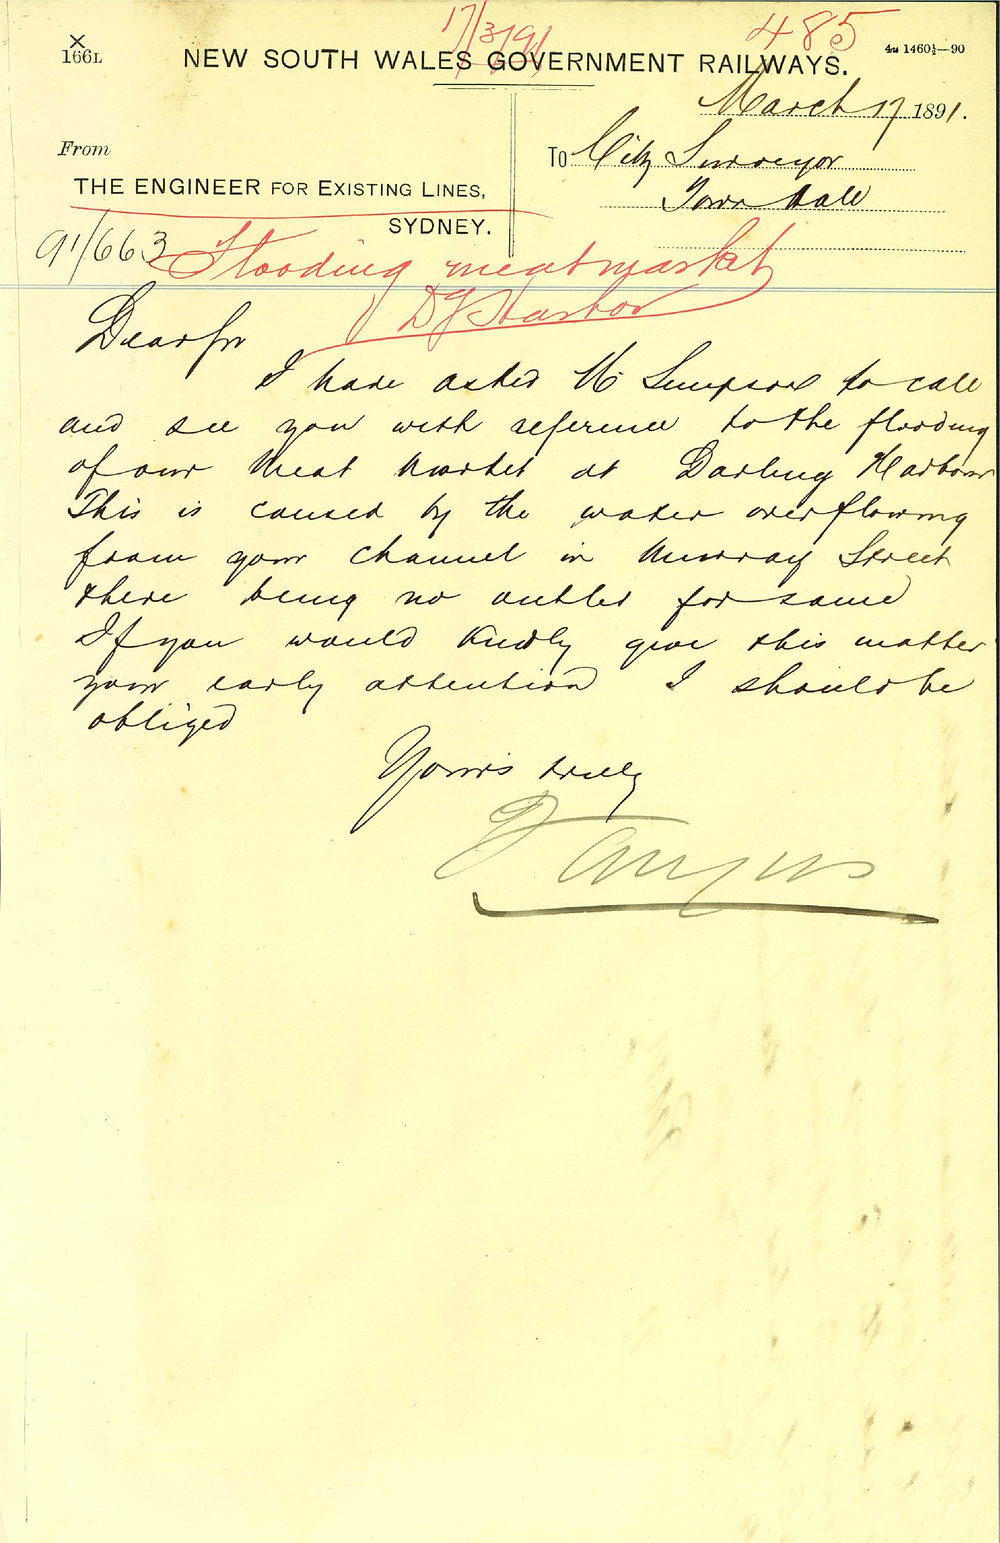 17/3/91 485
X
166L
4u 1460½—90
NEW SOUTH WALES GOVERNMENT RAILWAYS.
March 17 1891.
From
To City Surveyor
THE ENGINEER FOR EXISTING LINES,
Town Hall
SYDNEY.
91/663
Flooding meatmarket
D'g Harbor
Dear Sir
I have asked Mr Simpson to call
and see you with reference to the flooding
of our Meat Market at Darling Harbour
This is caused by the water overflowing
from your channel in Murray Street
there being no outlet for same
If you would kindly give this matter
your early attention I should be
obliged
Yours truly
Angus